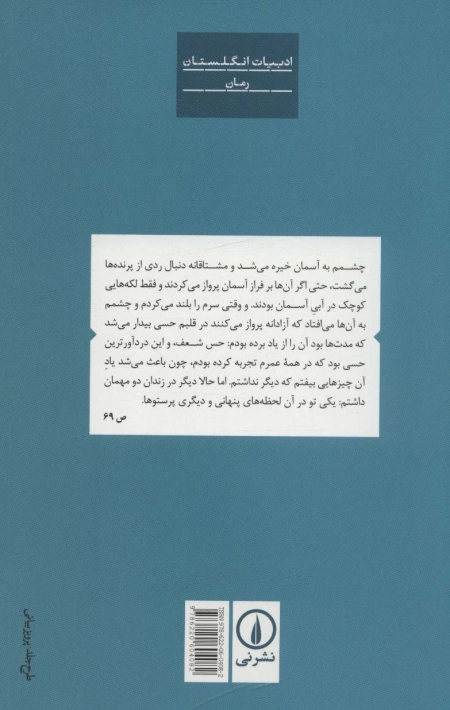 ادبیات انگلستان
رمان
چشمم به آسمان خیره می‌شد و مشتاقانه دنبال ردی از پرنده‌ها
می‌گشت، حتی اگر آن‌ها بر فراز آسمان پرواز می‌کردند و فقط لکه‌هایی
کوچک در آبیِ آسمان بودند. و وقتی سرم را بلند می‌کردم و چشمم
به آن‌ها می‌افتاد که آزادانه پرواز می‌کنند در قلبم حسی بیدار می‌شد
که مدت‌ها بود آن را از یاد برده بودم: حس شعف، و این دردآورترین
حسی بود که در همهٔ عمرم تجربه کرده بودم، چون باعث می‌شد یادِ
آن چیزهایی بیفتم که دیگر نداشتم. اما حالا دیگر در زندان دو مهمان
داشتم: یکی تو در آن لحظه‌های پنهانی و دیگری پرستوها.
ص ۶۹
طرح جلد: پرویز بیانی
نشرنی